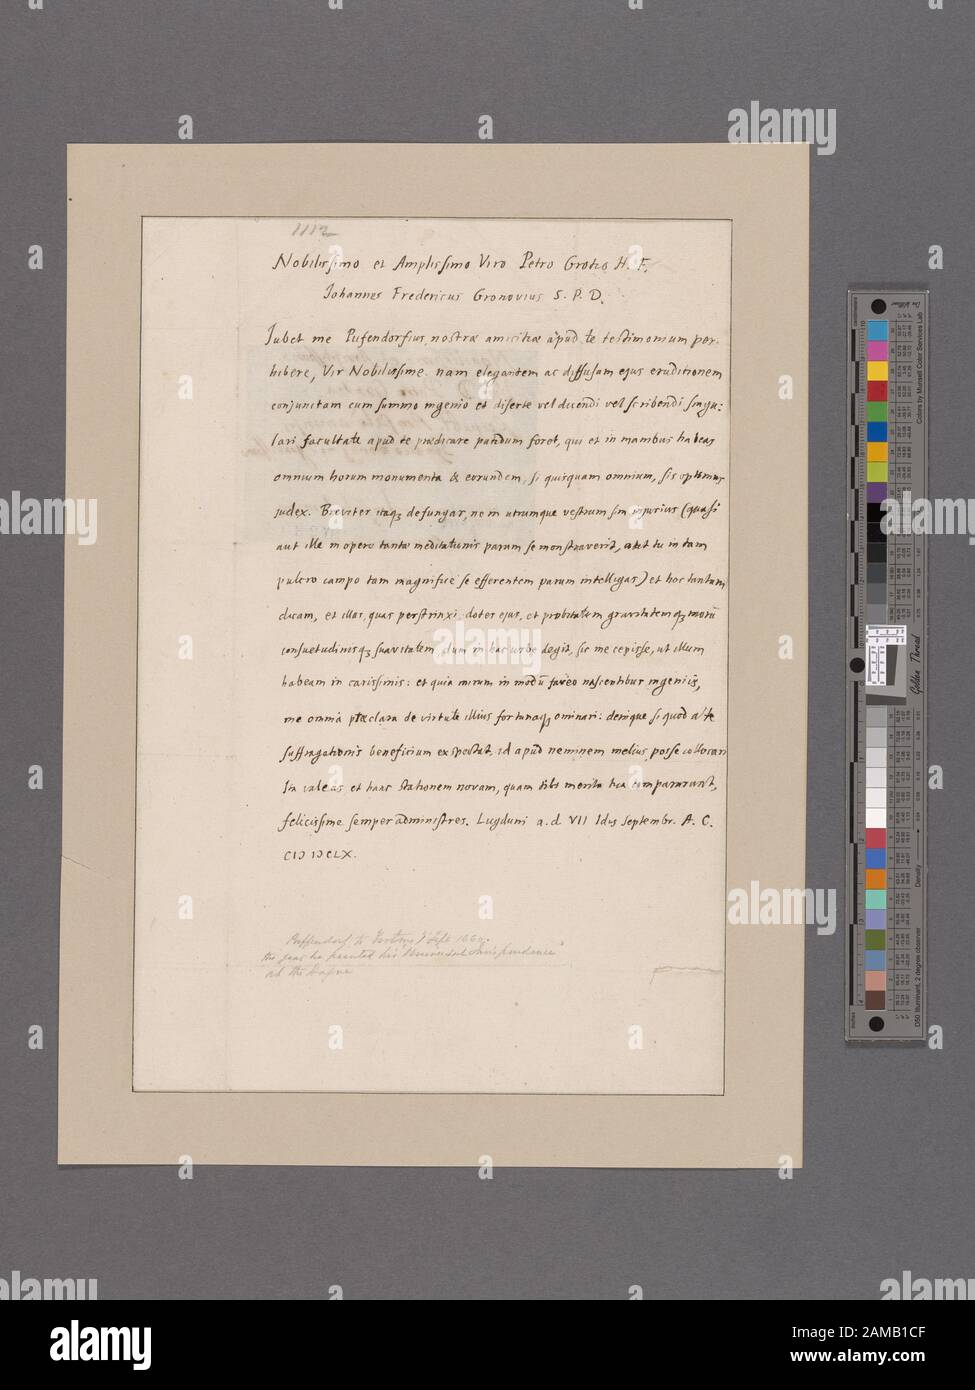 1112
Nobilissimo et Amplissimo Viro Petro Grotio H. F.
Johannes Fredericus Gronovius S. P. D.
Jubet me Pufendorfius nostræ amicitiæ apud te testimonium per-
hibere, Vir Nobilissime. nam elegantem ac diffusam ejus eruditionem
conjunctam cum summo ingenio et diserte vel dicendi vel scribendi singu-
lari facultate apud te prædicare putidum foret, qui et in manibus habeas
omnium horum monumenta & eorundem, si quisquam omnium, sis optimus
judex. Breviter itaq; defungar, ne in utrumque vestrum sim injurius (quasi
aut ille in opere tantæ meditationis parum se monstraverit, aut tu in tam
pulcro campo tam magnifice se efferentem parum intelligas) et hoc tantum
dicam, et illas, quas perstrinxi, dotes ejus, et probitatem gravitatem q; morū
consuetudinisq; suavitatem, dum in hac urbe degit, sic me cepisse, ut illum
habeam in carissimis: et quia mirum in modū faveo nascentibus ingeniis,
me omnia præclara de virtute illius fortunaq; ominari: denique si quod a te
suffragationis beneficium exspectat, id apud neminem melius posse collocari
Ita valeas et hanc stationem novam, quam tibi merita tua compararunt,
felicissime semper administres. Lugduni a. d. VII Idus Septembr. A. C.
CIↃ IↃCLX.
Puffendorf to
the year he printed his Universal Jurisprudence
at the Hague
alamy
Image ID: 2AMB1CF
www.alamy.com
Golden Thread
Colors by Munsell Color Services Lab
Density
D50 Illuminant, 2 degree observer